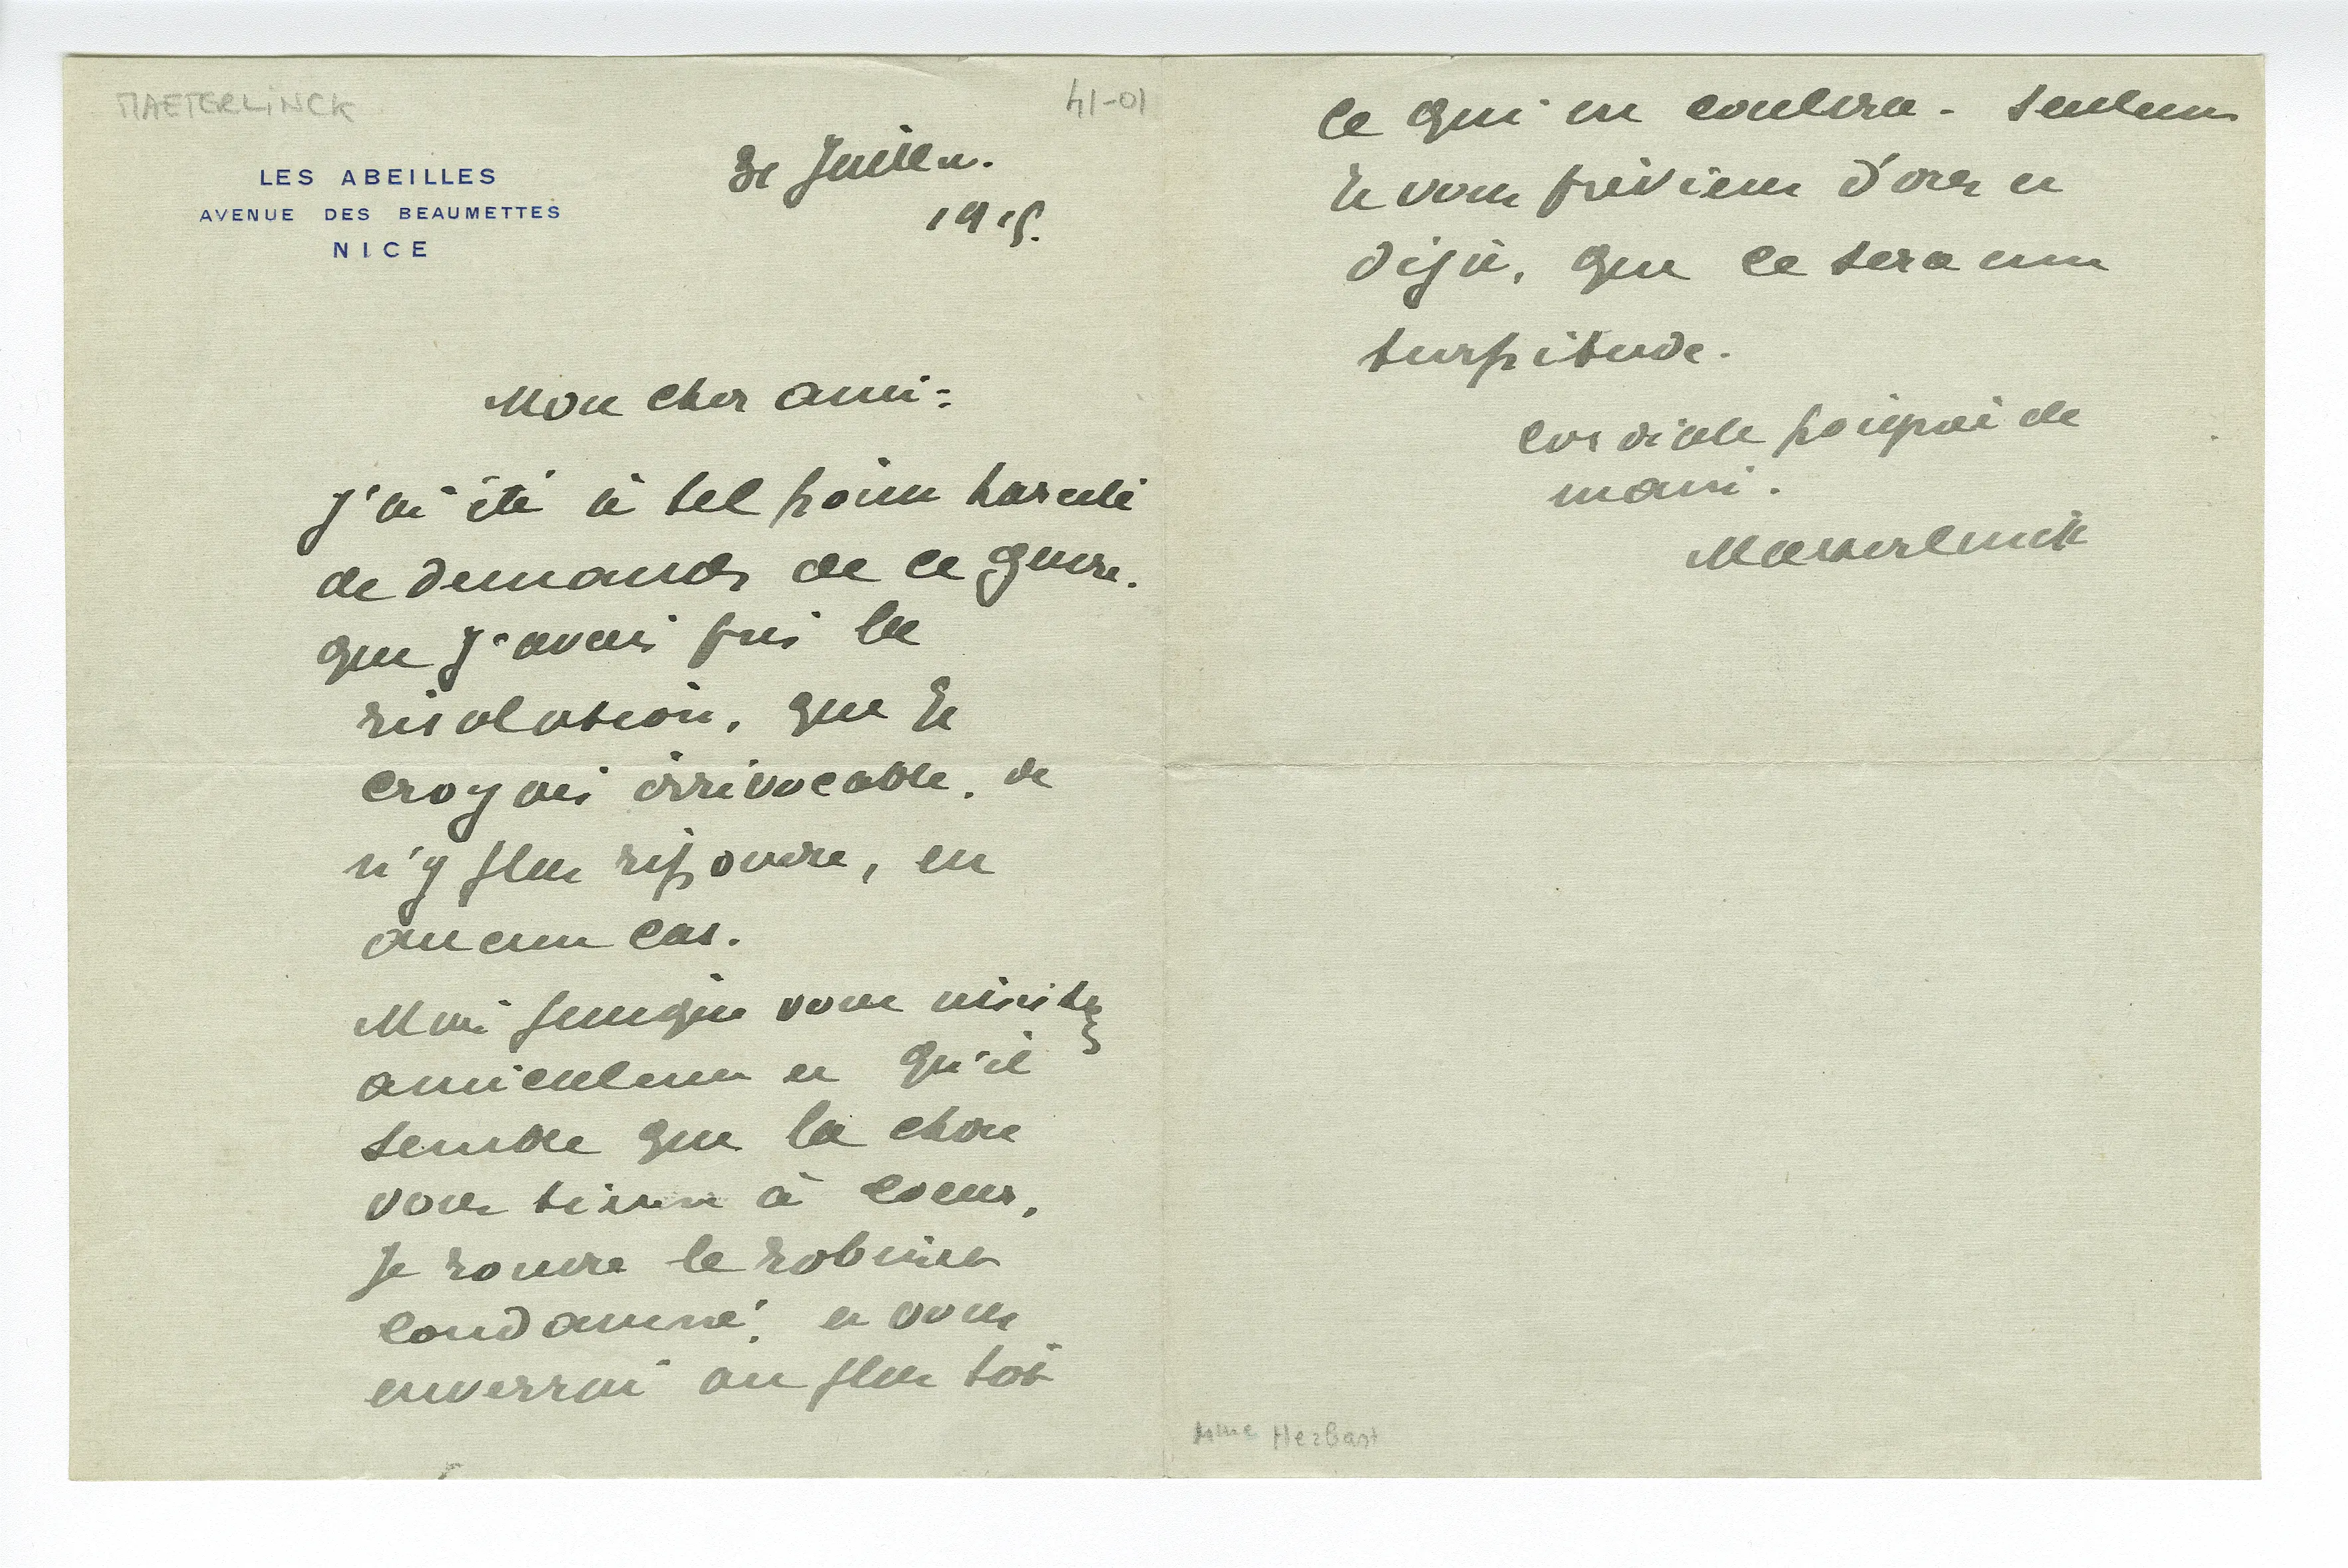 MAETERLINCK
41-01
LES ABEILLES
AVENUE DES BEAUMETTES
NICE
Juillet.
1915.
Mon cher ami:
J'ai été à tel point harcelé
de demandes de ce genre.
que j'avais pris la
résolution, que je
croyais irrévocable. de
n'y plus répondre, en
aucun cas.
Mais puisque vous insistez
amicalement et qu'il
semble que la chose
vous tienne à coeur,
je rouvre le robinet
condamné. et vous
enverrai au plus tôt
ce qui en coulera. Seulement
je vous préviens d'ores et
déjà, que ce sera une
turpitude.
Cordiale poignée de
main.
Maeterlinck
Mme Herbart